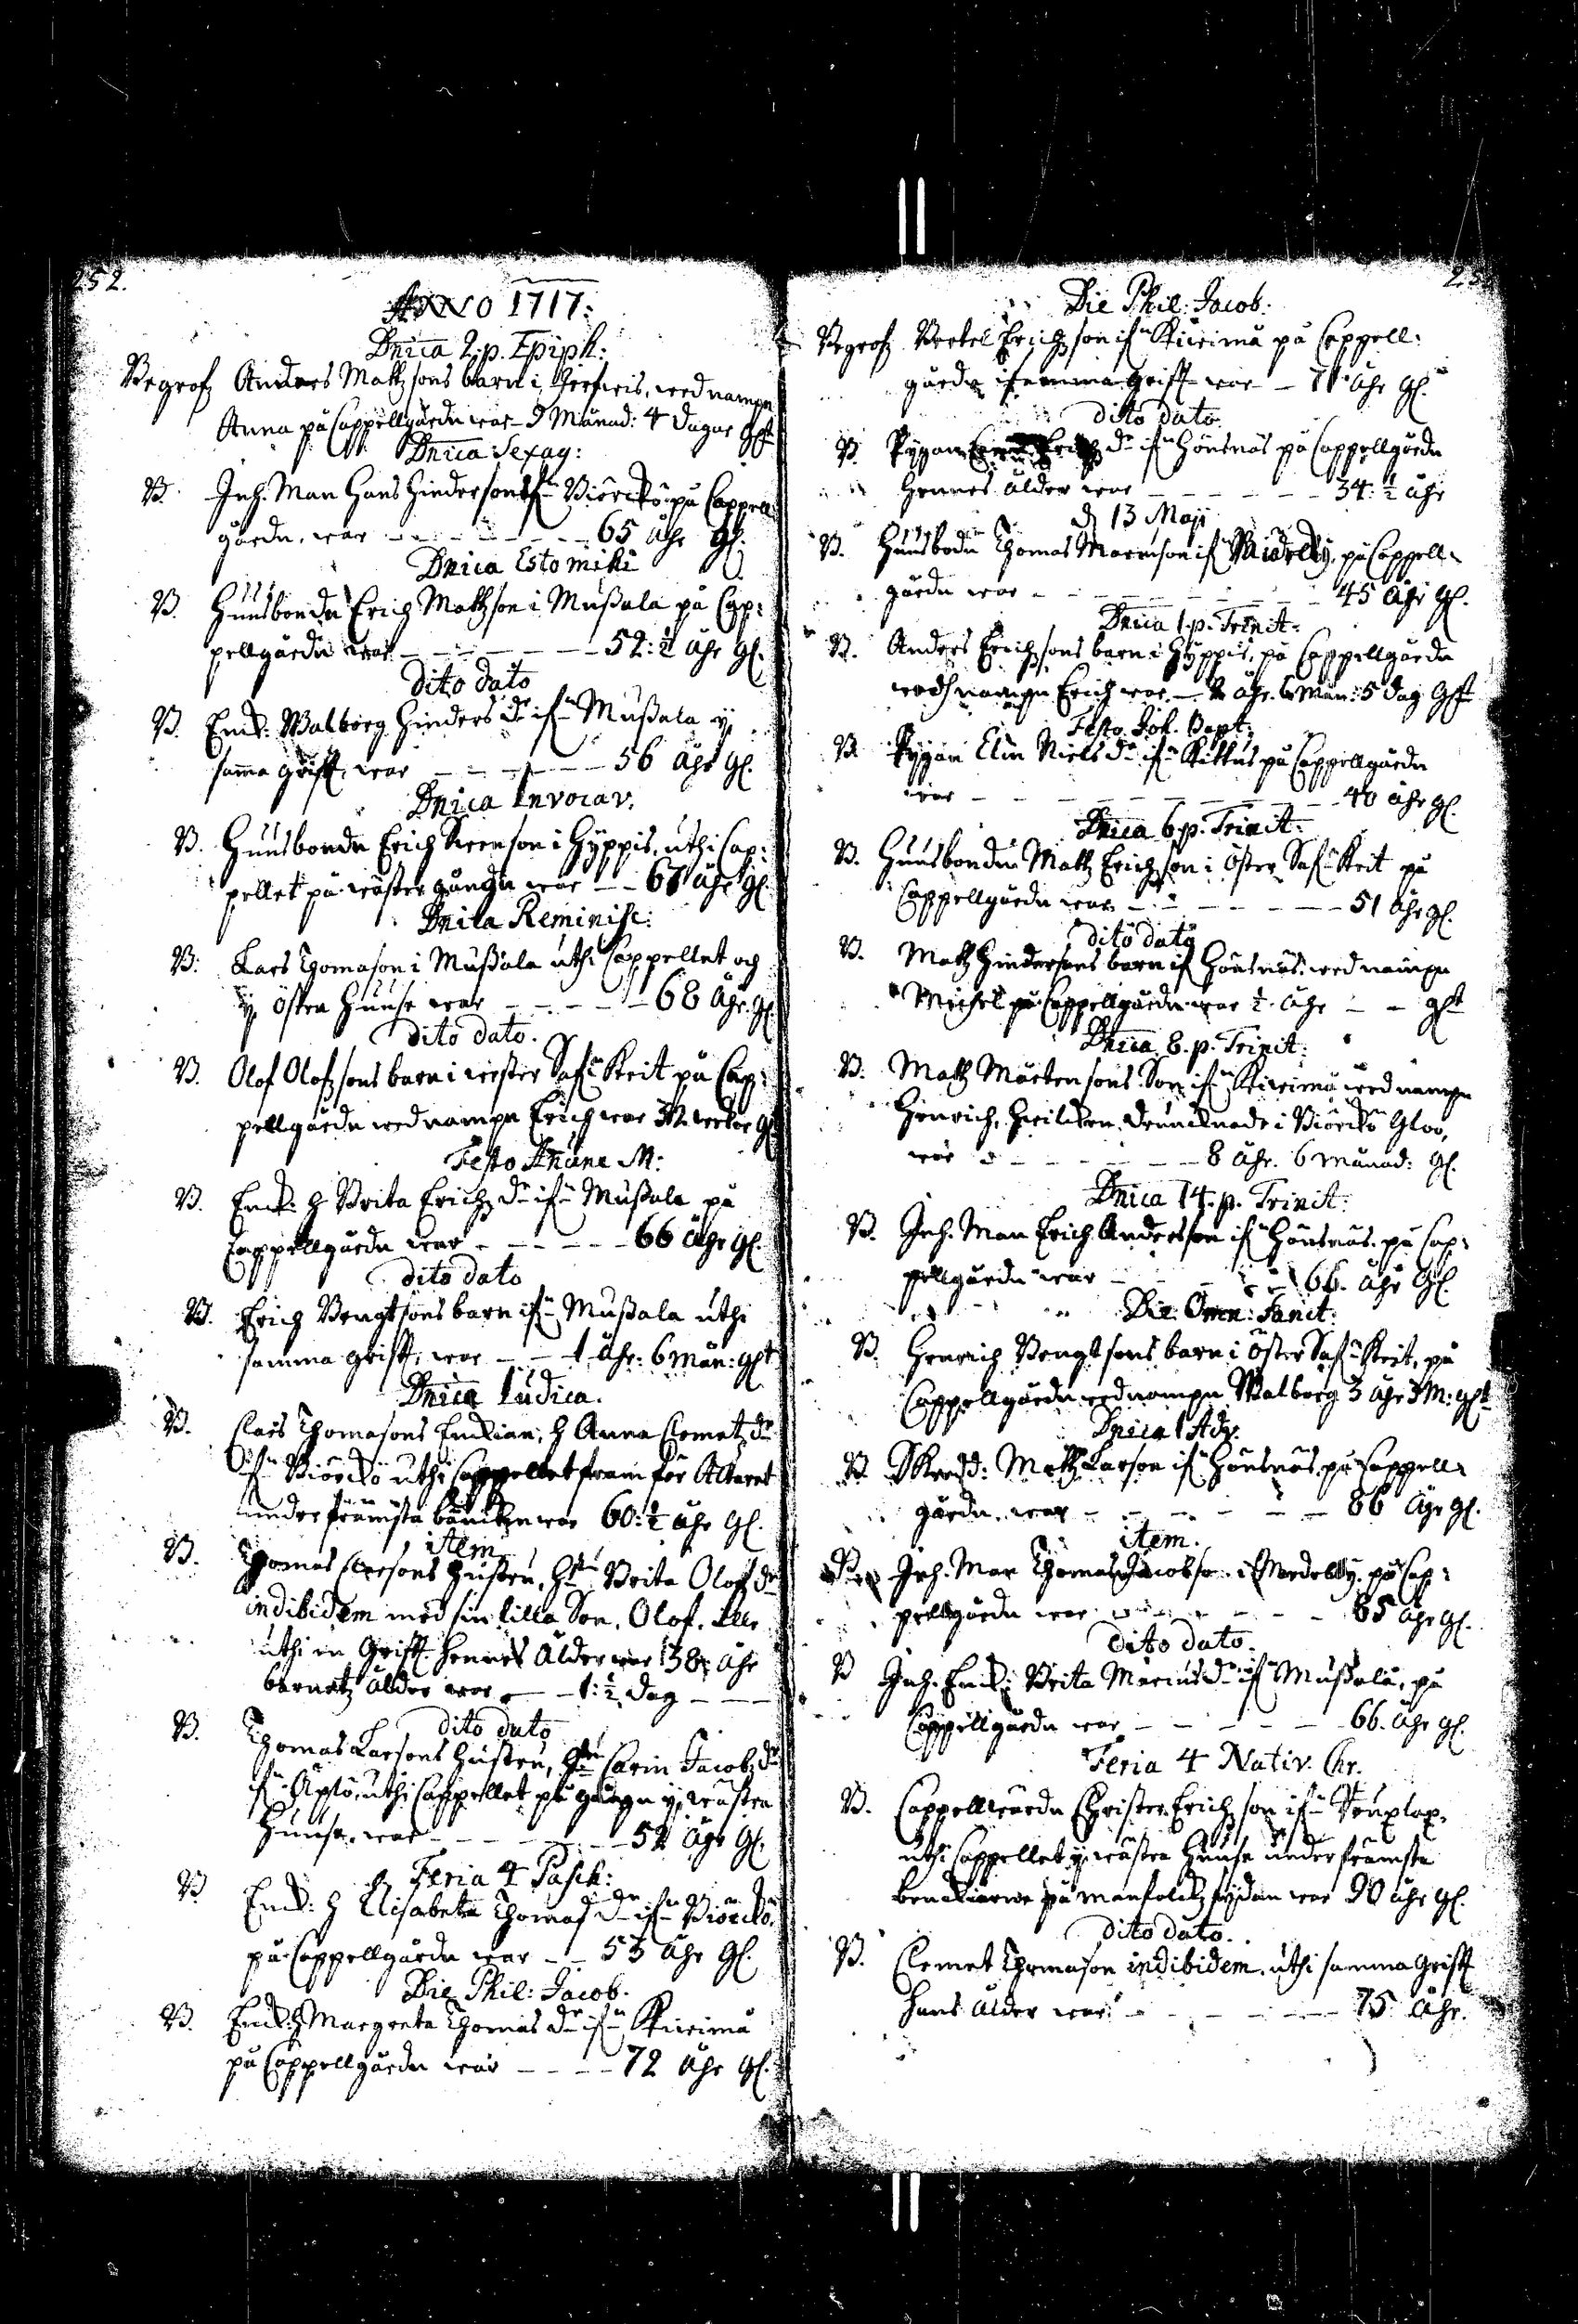 252.
ANNO 1717:
Dnica 2. p. Epiph:
Begrofz Anders Mattzsons barn i Jerfwis, wed nampn
Anna på Cappellgårdn war - 9 Månad: 4 dagar glt
Dnica Sexag:
B. Inh. Man Hans Hinderson if: Biörckö på Cappell
gårdn, war - - - - - - 65 åhr gl.
Dnica Esto mihi
B. Huusbondn Erich Mattzson i Mussala på Cap:
pellgårdn war - - - - - - 52: ½ åhr gl.
dito dato
B. Enk: Walborg Hinders dr if: Mussala y
samma grift, war - - - - - 56 åhr gl.
Dnica Invocav.
B. Huusbondn Erich Persson i Hyppis, uthi Cap:
pellet på wäster gångn war - - 67 åhr gl.
Dnica Reminisc:
B: Lars Thomason i Mussala uthi Cappellet och
y östra Huuse war - - - - - 68 åhr. gl.
dito dato.
B. Olof Olofzsons barn i wäster Saf: Keit på Cap:
pellgårdn wed nampn Erich war weker gl.
Festo Anune M:
B. Enk: h Brita Erichz dr if: Mussala på
Cappellgårdn war - - - - - 66 åhr gl.
dito dato
B. Erich Bengtsons barn if: Mussala uthi
samma grift, war - - 1 åhr: 6 mån: glt
Dnica Iudica.
B. Clas Thomasons Enkian, h Anna Clemetz dr
if: Biörckö uthi Cappellet fram för Altaret
under främsta bänckn war 60: ½ åhr gl.
item
B. Thomas Clasons hustru, Hstru Brita Olofz dr
indibidem med sin lilla Son, Olof,
uthi en Grift. hennes Ålder war 38: åhr
barnetz ålder war - - 1: ½ dag - - -
dito dato
B. Thomas Larsons hustru, Hstru Carin Jacobz dr
if: Apslö, uthi Cappellet på gångn y, wästra
Huuse, war - - - - - - 52 åhr gl.
Feria 4 Pasch:
B Enk: h Elisabeta Thomas dr if: Biörckö,
på Cappellgårdn war - - 53 åhr gl.
Die Phil: Jacob.
B. Enk: h Margreta Thomas dr if: Kiirima
på Cappellgårdn war - - - - 72 åhr gl.
25
Die Phil: Jacob:
Begrofz Bertel Erichzson if: Kiirima på Cappell:
gårdn i samma grift war - 71 åhr gl.
dito dato
B. Pygan Erichz dr if: Hönsnäs på Cappellgårdn
hennes ålder war - - - - - - 34: ½ åhr
d 13 Maji
B. Huusbondn Thomas Marcuson if: Medelby, på Cappell-
gårdn war - - - - - - - - 45 åhr gl.
Dnica 1. p. Trinit:
B. Anders Erichsons barn i Hyppis, på Cappellgårdn
wedh nampn Erich war - 2 åhr. 6 mån: 5 dag glt
Festo Joh. Bapt.
B. Pygan Elin Niels dr if: Kittus på Cappellgårdn
war - - - - - - - - - 40 åhr gl.
Dnica 6. p. Trinit:
B. Huusbondn Mattz Erichson i Öster Saf: Keit på
Cappellgårdn war - - - - - - - 51 åhr gl.
dito dato
B. Mattz Hindersons barn if Hönsnäs wed nampn
Michel på Cappellgårdn war ½ åhr - - glt
Dnica 8. p. Trinit:
B. Mattz Mårtensons Son if: Kiirima wed nampn
Henrich, hwilken drunknade i Biörckö Gloo,
war - - - - - - 8 åhr. 6 månad: gl.
Dnica 14. p. Trinit:
B. Inh. Man Erich Andersson if: Hönsnäs på Cap:
pellgårdn war - - - - 66. åhr gl.
Die Omn: Sanct:
B. Henrich Bengtsons barn i Öster Saf: Keit, på
Cappellgårdn wed nampn Walborg 3 åhr 3 M: glt
Dnica 1 Adv.
B. Mattz Larson if: Hönsnäs på Cappell-
gårdn, war - - - - - - 86 åhr gl.
item.
B. Inh. Man Thomas Jacobson if Medelby. på Cap:
pellgårdn war - - - - - - 85 åhr gl.
dito dato.
B Inh. Enk: Brita Marcus dr if: Mussala, på
Cappellgårdn war - - - - - - 66. åhr gl.
Feria 4 Nativ. Chr.
B. Cappellwärdn Christer Erichson if:
uthi Cappellet y, wästra Huuse under främste
benckiarne på manfolckz sydan war 90 åhr gl.
dito dato.
B. Clemet Thomason indibidem, uthi samma grift
hans ålder war - - - - - - 75 åhr.